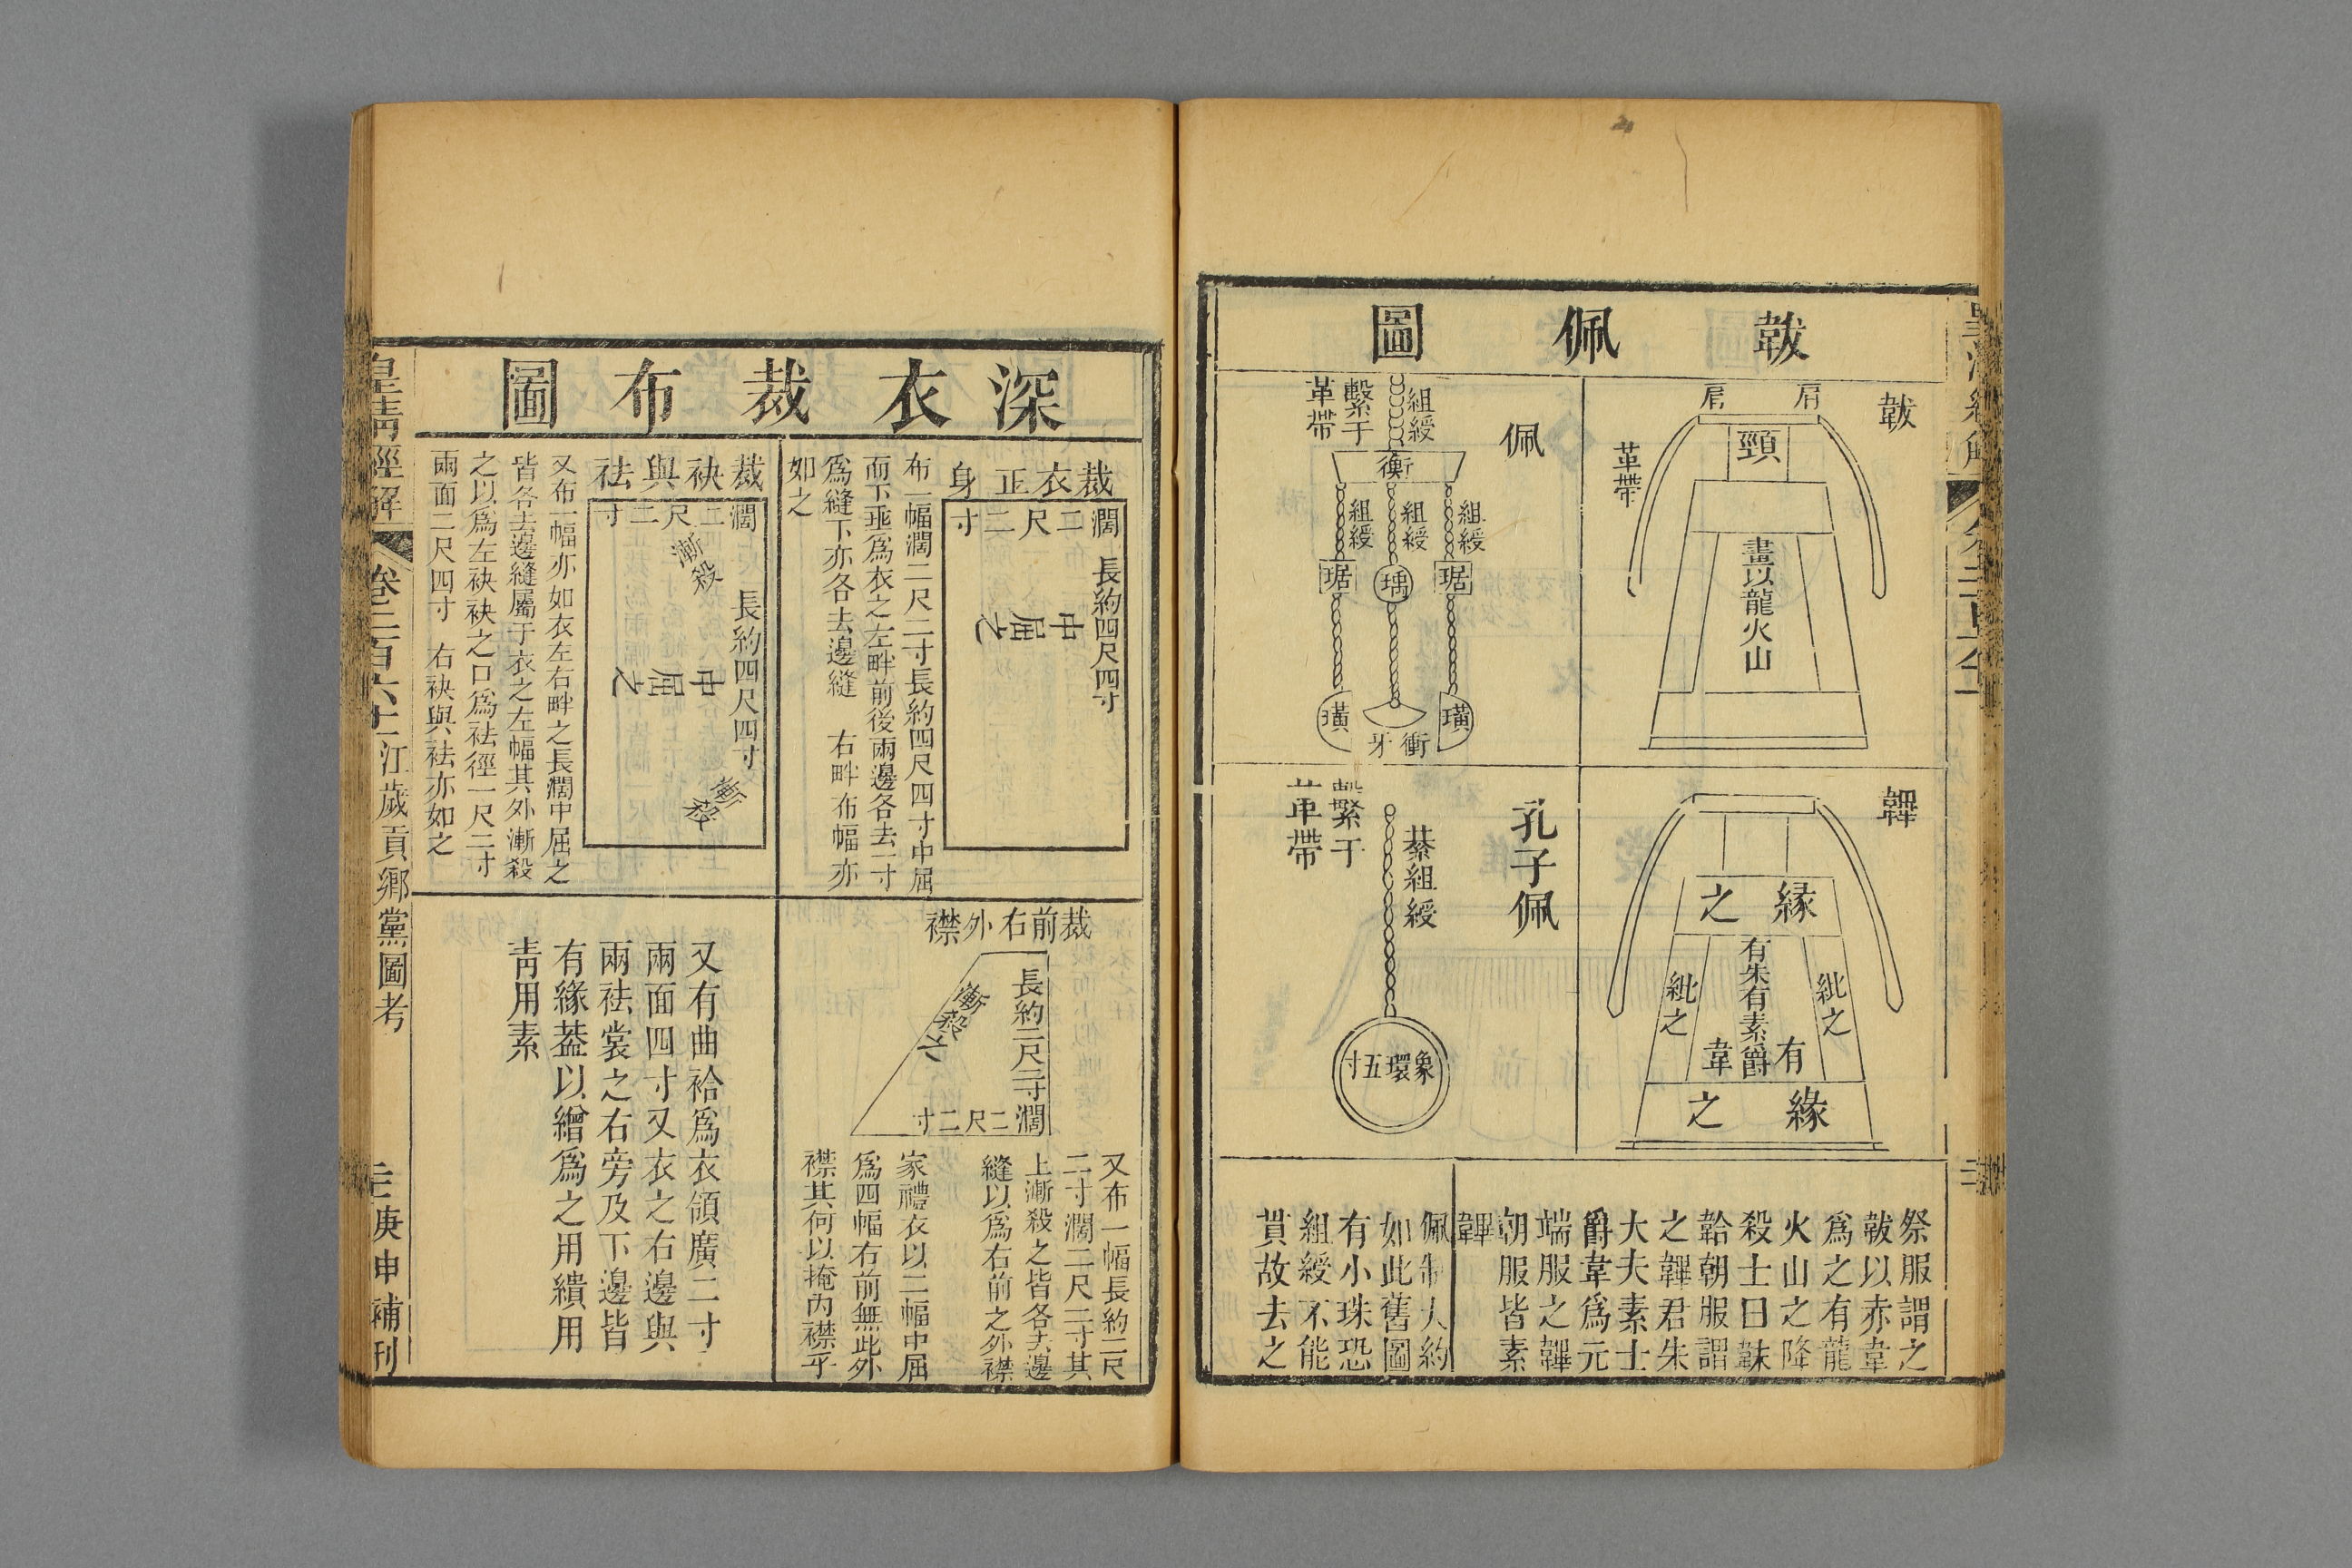 韍佩圖
韍
肩
肩
頸
革帶
畫以龍火山
佩
組綬
繫于
革帶
衡
組綬
組綬
組綬
琚
瑀
琚
璜
衝牙
璜
韠
緣之
紕之
有朱有素爵
有
韋
紕之
緣之
孔子佩
綦組綬
繫于
革帶
象環五寸
祭服謂之
韍以赤韋
爲之有龍
火山之降
殺士曰韎
韐朝服謂
之韠君朱
大夫素士
爵韋爲元
端服之韠
朝服皆素
韠
佩制大約
如此舊圖
有小珠恐
組綬不能
貫故去之
深衣裁布圖
裁衣正身
濶二尺二寸
長約四尺四寸
中屈之
布一幅濶二尺二寸長約四尺四寸中屈
而下垂爲衣之左畔前後兩邊各去一寸
爲縫下亦各去邊縫 右畔布幅亦
如之
裁袂與袪
濶二尺二寸
漸殺
長約四尺四寸
中屈之
漸殺
又布一幅亦如衣左右畔之長濶中屈之
皆各去邊縫屬于衣之左幅其外漸殺
之以爲左袂袂之口爲袪徑一尺二寸
兩面二尺四寸 右袂與袪亦如之
裁前右外襟
長約二尺二寸
漸殺
濶二尺二寸
又布一幅長約二尺
二寸濶二尺二寸其
上漸殺之皆各去邊
縫以爲右前之外襟
家禮衣以二幅中屈
爲四幅右前無此外
襟其何以掩內襟乎
又有曲袷爲衣領廣二寸
兩面四寸又衣之右邊與
兩袪裳之右旁及下邊皆
有緣葢以繒爲之用繢用
靑用素
皇淸經解
卷二百六十一
江歲貢鄉黨圖考
庚申補刊